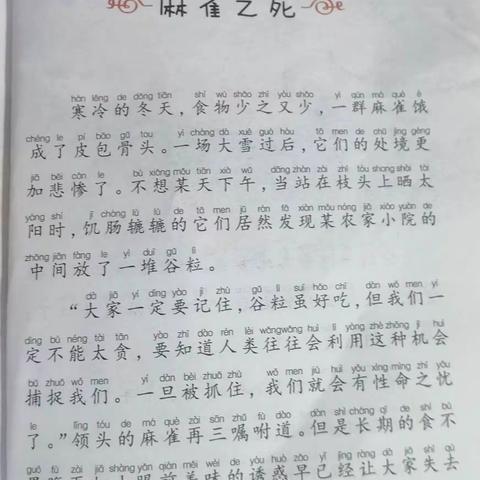 麻雀之死
hán lěng de dōng tiān shí wù shǎo zhī yòu shǎo yì qún má què è
寒冷的冬天,食物少之又少,一群麻雀饿
chéng le pí bāo gǔ tou yì chǎng dà xuě guò hòu tā men de chǔ jìng gèng
成了皮包骨头。一场大雪过后,它们的处境更
jiā bēi cǎn le bù xiǎng mǒu tiān xià wǔ dāng zhàn zài zhī tóu shang shài tài
加悲惨了。不想某天下午,当站在枝头上晒太
yáng shí jī cháng lù lù de tā men jū rán fā xiàn mǒu nóng jiā xiǎo yuàn de
阳时,饥肠辘辘的它们居然发现某农家小院的
zhōng jiān fàng le yì duī gǔ lì
中间放了一堆谷粒。
dà jiā yí dìng yào jì zhù gǔ lì suī hǎo chī dàn wǒ men yí
“大家一定要记住,谷粒虽好吃,但我们一
dìng bù néng tài tān yào zhī dào rén lèi wǎngwǎng huì lì yòng zhè zhǒng jī huì
定不能太贪,要知道人类往往会利用这种机会
bǔ zhuō wǒ men yí dàn bèi zhuā zhù wǒ men jiù huì yǒu xìng mìng zhī yōu
捕捉我们。一旦被抓住,我们就会有性命之忧
le lǐng tóu de má què zài sān zhǔ fù dào dàn shì cháng qī de shí bù
了。”领头的麻雀再三嘱咐道。但是长期的食不
guǒ fù zài jiā shàng yǎn qián měi wèi de yòu huò zǎo yǐ jīng ràng dà jiā shī qù
果腹再加上眼前美味的诱惑早已经让大家失去